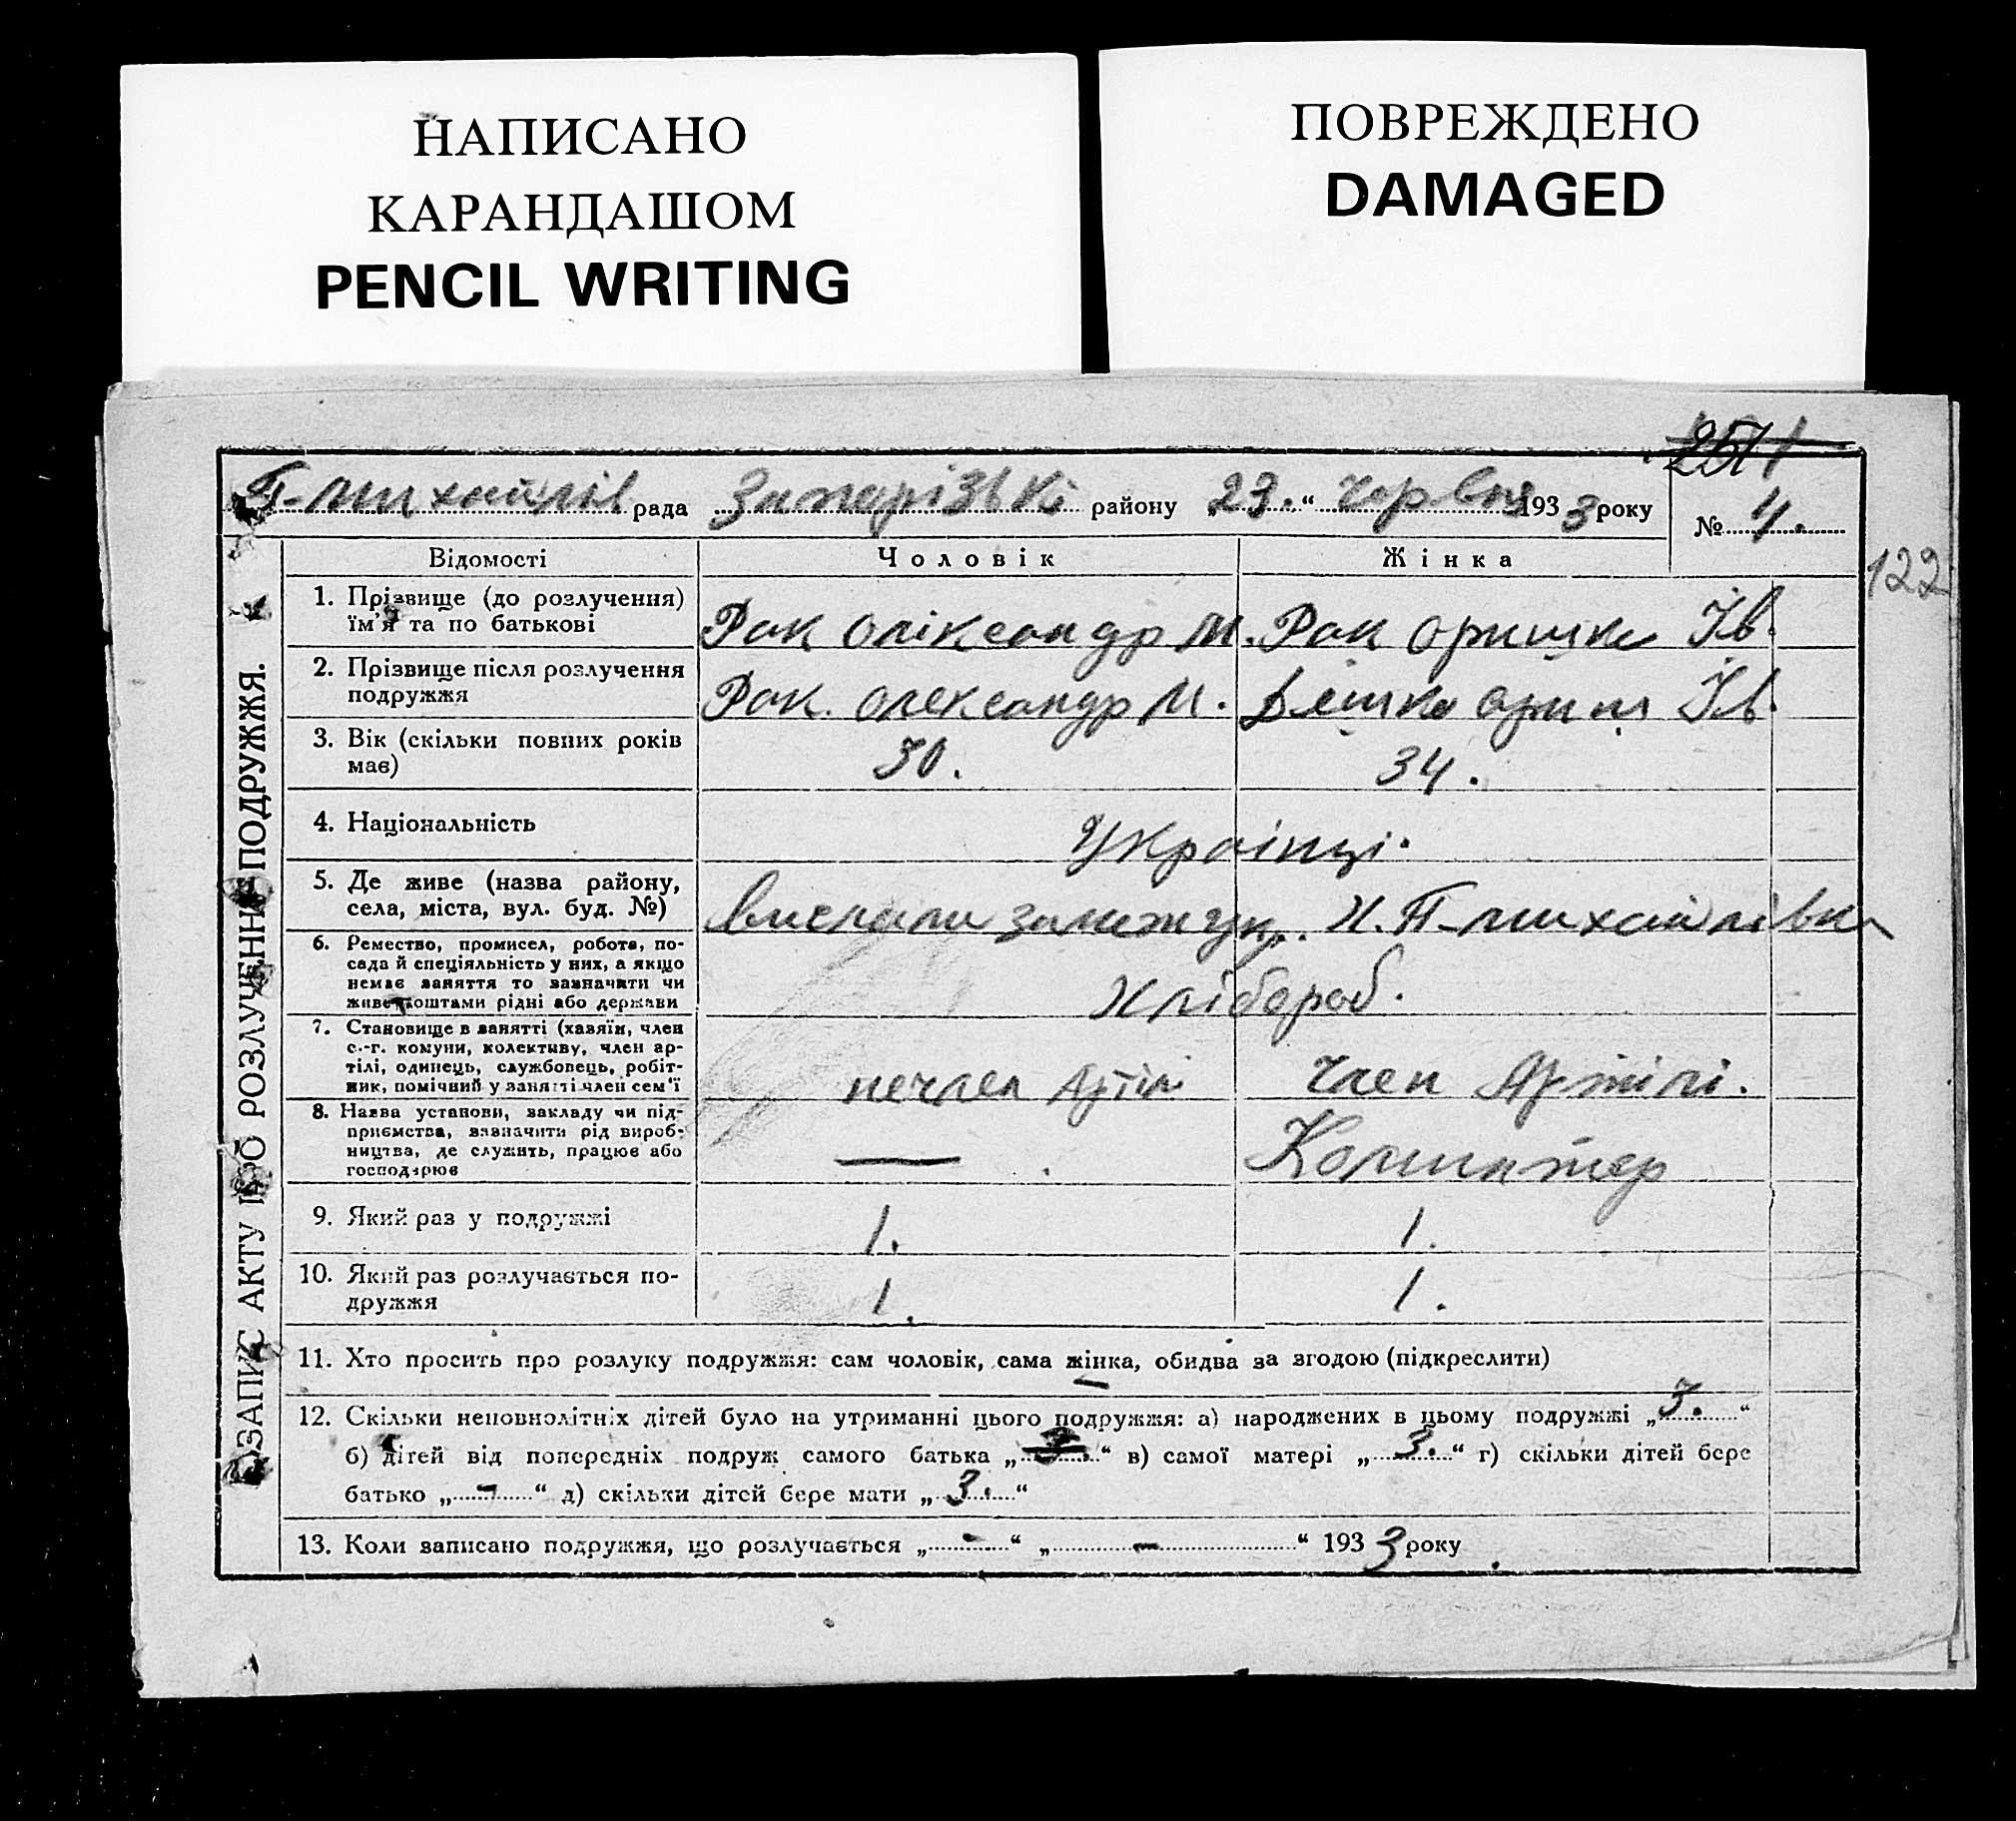 НАПИСАНО
КАРАНДАШОМ
PENCIL WRITING
ПОВРЕЖДЕНО
DAMAGED
П-михайлів рада Запорізькі району „23.“ Червня 1933 року
№ 4.
122
ЗАПИС АКТУ ПРО РОЗЛУЧЕННЯ ПОДРУЖЖЯ.
Відомості Чоловік Жінка
1. Прізвище (до розлучення) їм'я та по батькові
Рак Оліксандр М. Рак Оришка Ів.
2. Прізвище після розлучення подружжя
Рак. Олександр М. Ориш Ів.
3. Вік (скільки повних років має)
30. 34.
4. Національність
Українці.
5. Де живе (назва району, села, міста, вул. буд. №)
Вислали за меж Укр. Х. П-михайлівка
6. Ремество, промисел, робота, по-
сада й спеціяльність у них, а якщо
немає заняття то зазначити чи
живе коштами рідні або держави
Хлібороб.
7. Становище в занятті (хазяїн, член
с.-г. комуни, колективу, член ар-
тілі, одинець, службовець, робіт-
ник, помічний у занятті член сем'ї
нечлен Артілі Член Артілі.
8. Назва установи, закладу чи під-
приємства, зазначити рід вироб-
ництва, де служить, працює або
господарює
— Комінтер
9. Який раз у подружжі
1. 1.
10. Який раз розлучається по-
дружжя
1. 1.
11. Хто просить про розлуку подружжя: сам чоловік, сама жінка, обидва за згодою (підкреслити)
12. Скільки неповнолітніх дітей було на утриманні цього подружжя: а) народжених в цьому подружжі „3.“
б) дітей від попередніх подруж самого батька „3.“ в) самої матері „3.“ г) скільки дітей бере
батько „-“ д) скільки дітей бере мати „3.“
13. Коли записано подружжя, що розлучається „-“ „-“ 1933 року